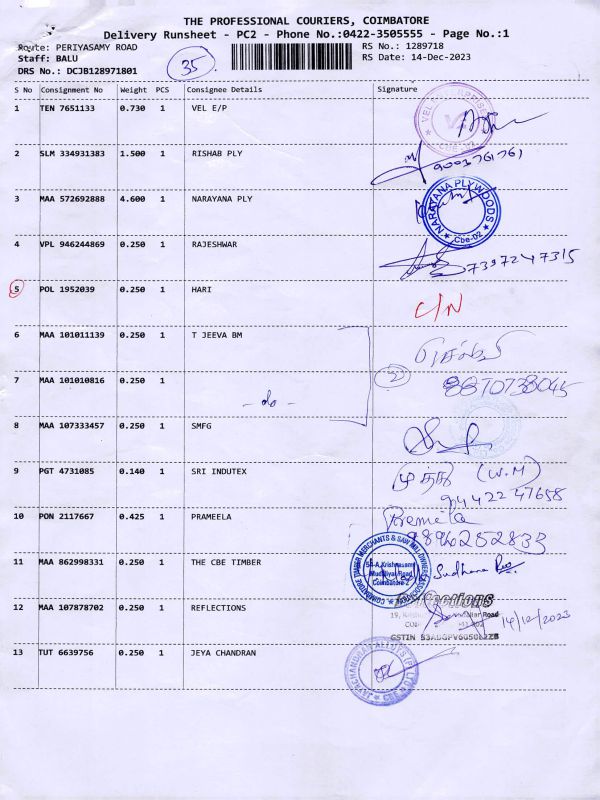 THE PROFESSIONAL COURIERS, COIMBATORE
Delivery Runsheet - PC2 - Phone No.:0422-3505555 - Page No.:1
Route: PERIYASAMY ROAD
RS No.: 1289718
Staff: BALU
35
RS Date: 14-Dec-2023
DRS No.: DCJB128971801
S No Consignment No Weight PCS Consignee Details Signature
1 TEN 7651133 0.730 1 VEL E/P
2 SLM 334931383 1.500 1 RISHAB PLY
9003761761
3 MAA 572692888 4.600 1 NARAYANA PLY
NARAYANA PLYWOODS
Cbe-02
4 VPL 946244869 0.250 1 RAJESHWAR
7397247315
5 POL 1952039 0.250 1 HARI C/N
6 MAA 101011139 0.250 1 T JEEVA BM
7 MAA 101010816 0.250 1 - do - 2 8870738045
8 MAA 107333457 0.250 1 SMFG
9 PGT 4731085 0.140 1 SRI INDUTEX (W.M)
9442247658
10 PON 2117667 0.425 1 PRAMEELA Premila
9896252833
11 MAA 862998331 0.250 1 THE CBE TIMBER
COIMBATORE TIMBER MERCHANTS & SAW MILL OWNERS ASSOCIATION
Coimbatore-2
12 MAA 107878702 0.250 1 REFLECTIONS Reflections
14/12/2023
13 TUT 6639756 0.250 1 JEYA CHANDRAN
CBE